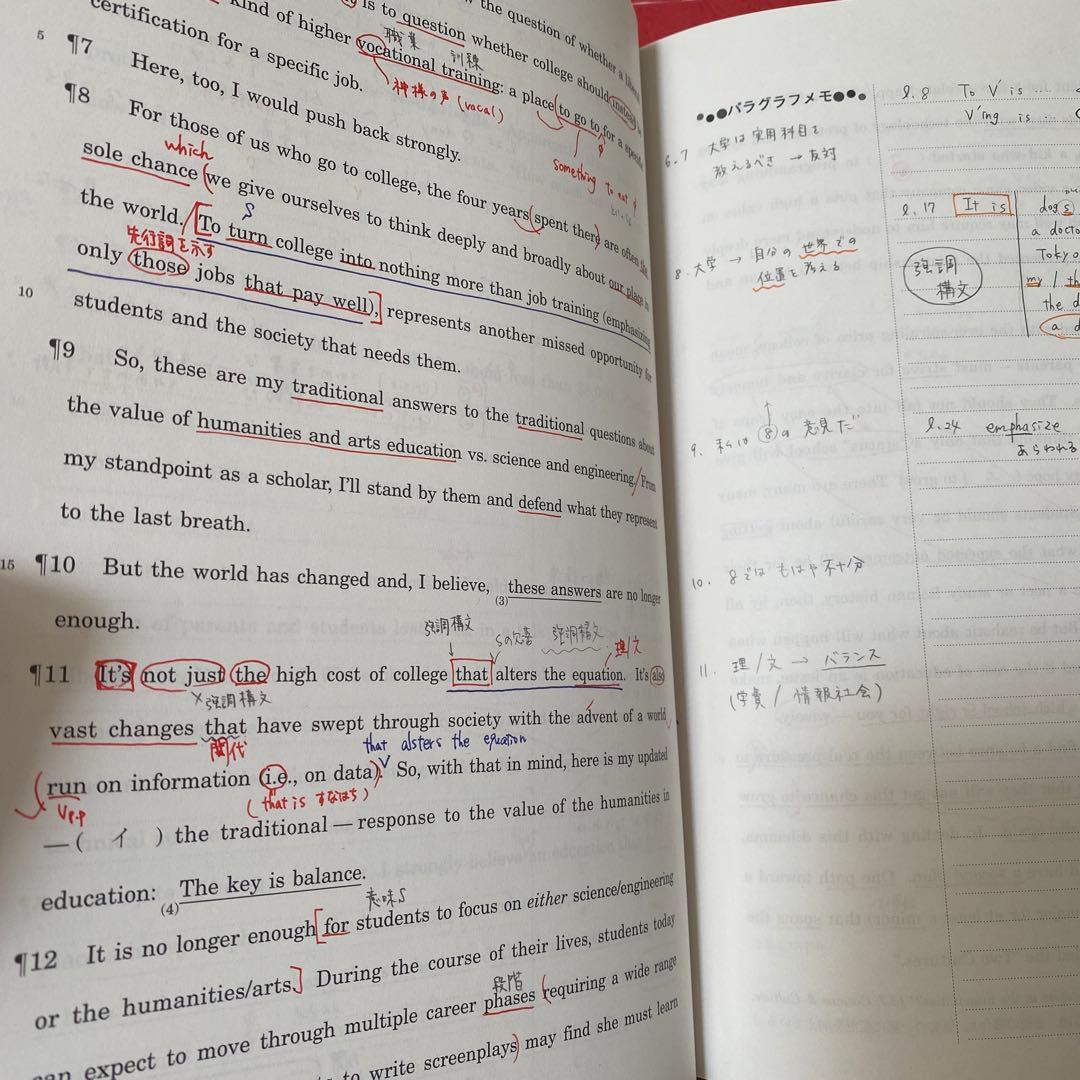 the question of whether a
kind of higher is to question whether college should instead
certification for a specific job.
職業 訓練
vocational training: a place to go to for a
神様の声 (vocal)
something to eat
5
¶7 Here, too, I would push back strongly.
¶8 For those of us who go to college, the four years spent there are often the
which
sole chance we give ourselves to think deeply and broadly about our place in
S
the world. To turn college into nothing more than job training (emphasizing
先行詞を示す
only those jobs that pay well), represents another missed opportunity for
10
students and the society that needs them.
¶9 So, these are my traditional answers to the traditional questions about
the value of humanities and arts education vs. science and engineering. From
my standpoint as a scholar, I'll stand by them and defend what they represent
to the last breath.
15
¶10 But the world has changed and, I believe, these answers are no longer
(3)
enough.
強調構文 Sの 強調構文 理/文
¶11 It's not just the high cost of college that alters the equation. It's also
×強調構文
vast changes that have swept through society with the advent of a world
関代 that alsters the equation
run on information (i.e., on data). So, with that in mind, here is my updated
Vp.p (that is すなはち)
—( イ ) the traditional — response to the value of the humanities in
education: The key is balance.
(4)
意味S
¶12 It is no longer enough for students to focus on either science/engineering
or the humanities/arts. During the course of their lives, students today
段階
can expect to move through multiple career phases requiring a wide range
to write screenplays may find she must learn
●●●パラグラフメモ●●●
6.7 大学は実用科目を
教えるべき → 反対
8. 大学 → 自分の世界での
位置を考える
9. 私は⑧の意見だ
10. 8ではもはや不十分
11. 理/文 → バランス
(学費 / 情報社会)
l.8 To V is
V'ing is ...
l.17 It is
強調
構文
dogs
a docto
Tokyo
my / th
the d
a d
l.24 emphasize
あらわれる